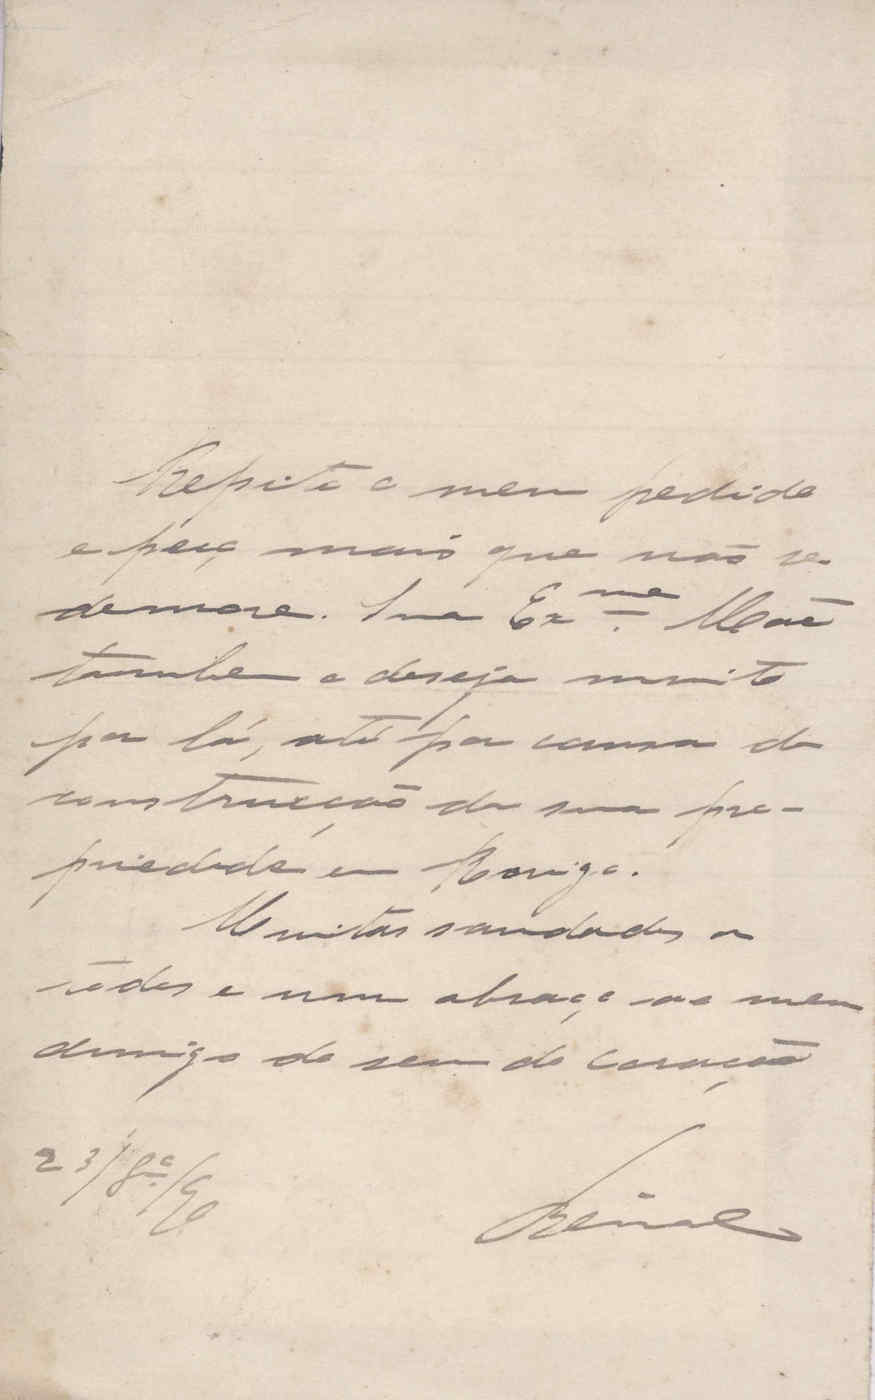 Repito o meu pedido
e peço mais que não se
demore. Sua Ex.ma Mãe
tambem o deseja muito
por lá, até por causa da
construcção da sua pro-
priedade em
Muitas saudades a
todos e um abraço ao meu
amigo do seu do coração
23/8º/90